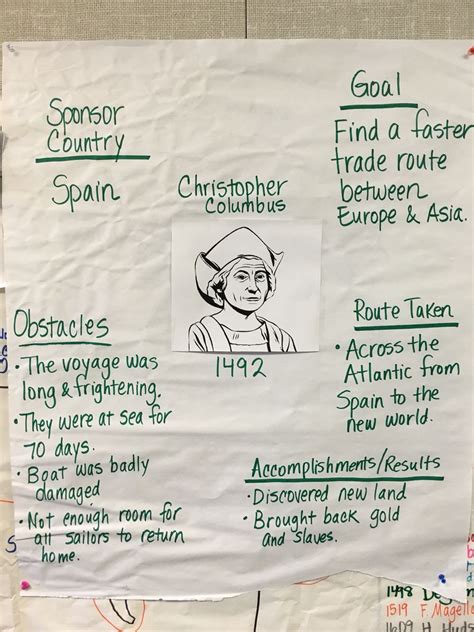 Sponsor
Country
Spain
Christopher
Columbus
1492
Goal
Find a faster
trade route
between
Europe & Asia.
Obstacles
• The voyage was
long & frightening.
• They were at sea for
70 days.
• Boat was badly
damaged
• Not enough room for
all sailors to return
home.
Route Taken
• Across the
Atlantic from
Spain to the
new world.
Accomplishments/Results
• Discovered new land
• Brought back gold
and slaves.
1519 F. Magell